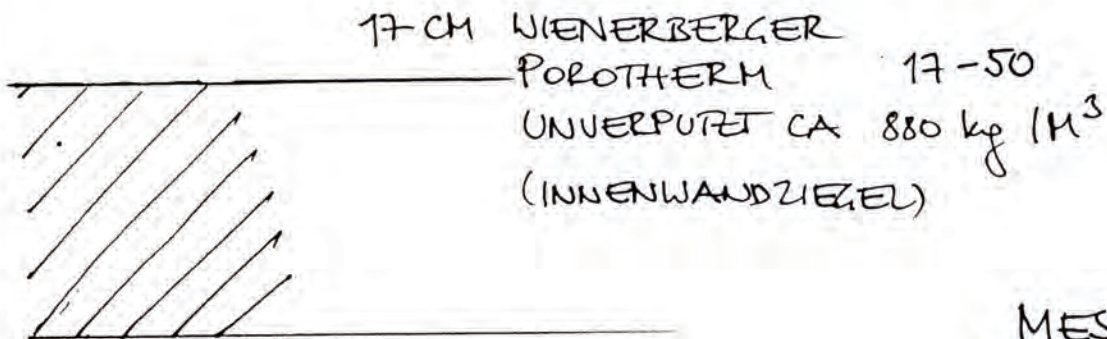 17 CM WIENERBERGER
POROTHERM 17-50
UNVERPUTZT CA 880 kg /M³
(INNENWANDZIEGEL)
MES